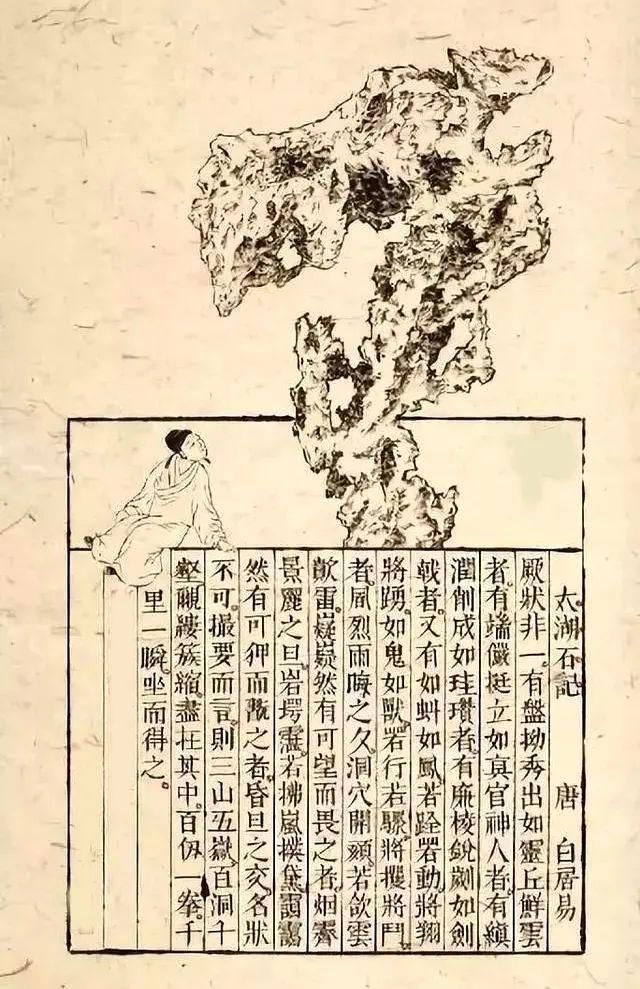 太湖石記 唐 白居易
厥狀非一。有盤拗秀出如靈丘鮮雲
者。有端儼挺立如真官神人者。有縝
潤削成如珪瓚者。有廉棱銳劌如劍
戟者。又有如虯如鳳。若跧若動。將翔
將踴。如鬼如獸。若行若驟。將攫將鬥
者。風烈雨晦之夕。洞穴開頦。若欱雲
歕雷。嶷嶷然有可望而畏之者。烟霽
景麗之旦。岩堮霮。若拂嵐撲黛。靄靄
然有可狎而翫之者。昏旦之交。名狀
不可撮要而言。則三山五嶽。百洞千
壑。覼縷簇縮。盡在其中。百仞一拳。千
里一瞬。坐而得之。